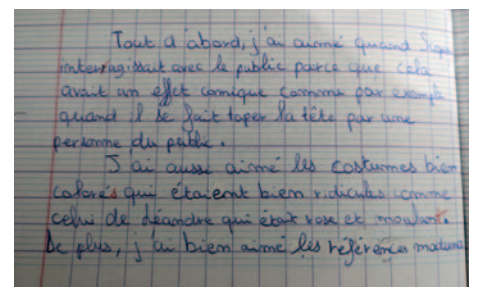 Tout d'abord, j'ai aimé quand Scapin
interragissait avec le public parce que cela
avait un effet comique comme par exemple
quand il se fait taper la tête par une
personne du public.
J'ai aussi aimé les costumes bien
colorés qui étaient bien ridicules comme
celui de Léandre qui était rose et moulant.
De plus, j'ai bien aimé les références modernes